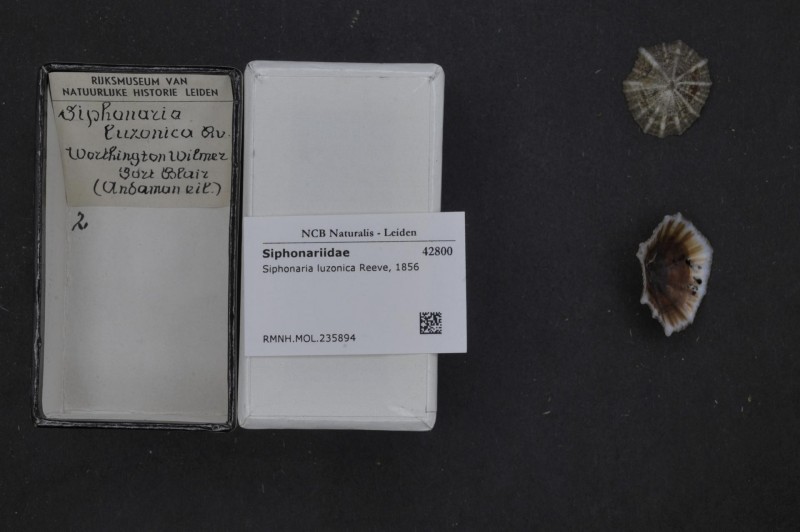 RIJKSMUSEUM VAN
NATUURLIJKE HISTORIE LEIDEN
Siphonaria
luzonica Rv.
Worthington Wilmer
Port Blair
(Andaman eil.)
2
NCB Naturalis - Leiden
Siphonariidae 42800
Siphonaria luzonica Reeve, 1856
RMNH.MOL.235894